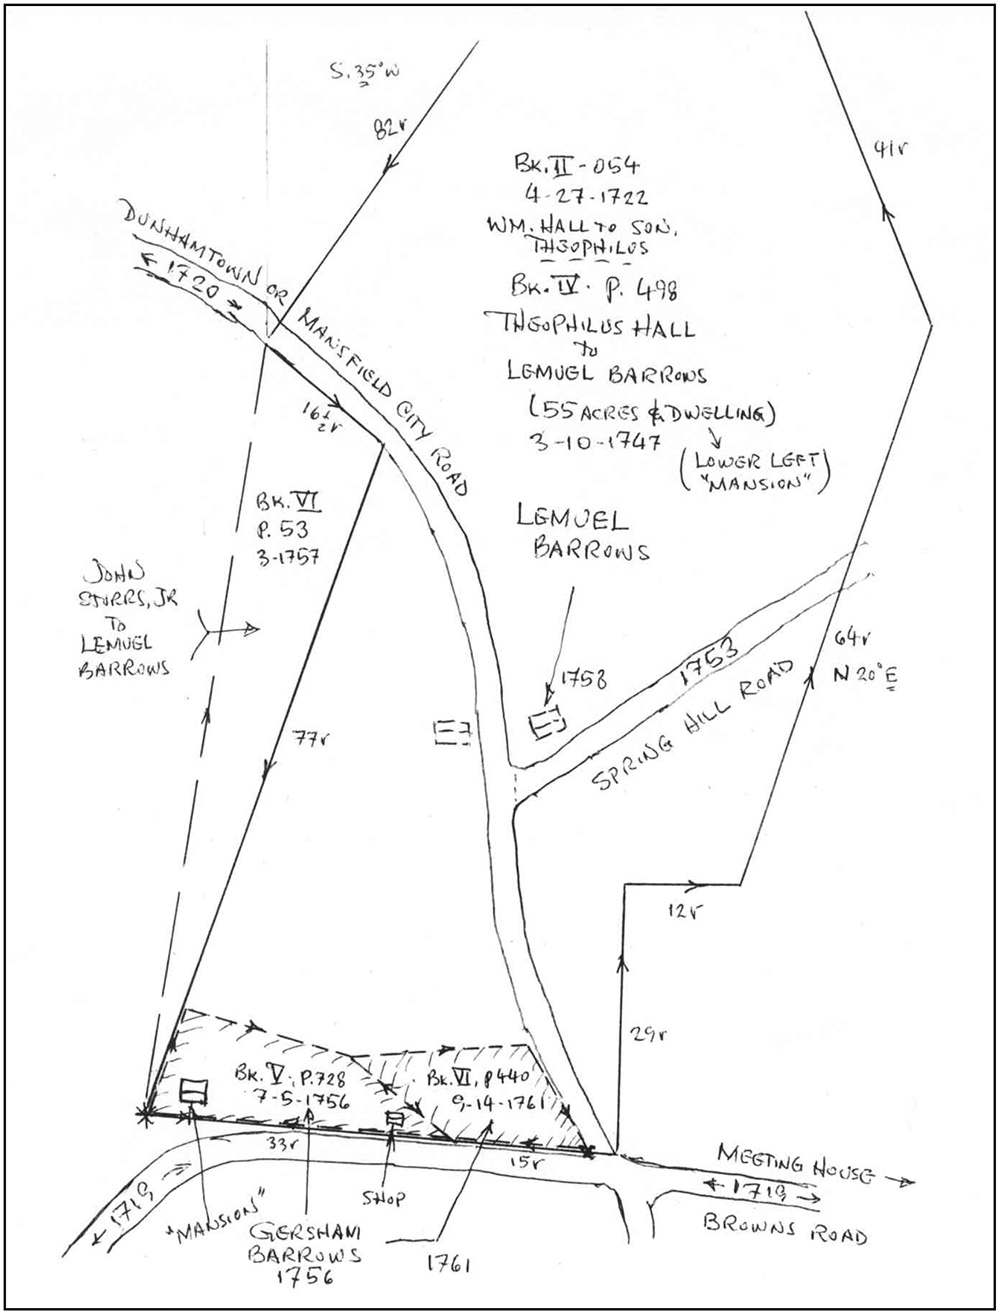 S. 35° W
82r
41r
BK. II - 054
4-27-1722
WM. HALL TO SON,
THEOPHILUS
BK. IV. P. 498
THEOPHILUS HALL
TO
LEMUEL BARROWS
(55 ACRES & DWELLING)
3-10-1747
(LOWER LEFT
"MANSION")
DUNHAMTOWN OR MANSFIELD CITY ROAD
1720
16 1/2 r
BK. VI
P. 53
3-1757
LEMUEL
BARROWS
JOHN
STORRS, JR
TO
LEMUEL
BARROWS
1758
1753
SPRING HILL ROAD
64r
N 20° E
77r
12r
29r
BK. V, P. 728
7-5-1756
BK. VI, P 440
9-14-1761
33r
15r
MEETING HOUSE
1719
BROWNS ROAD
1719
"MANSION"
SHOP
GERSHAM
BARROWS
1756
1761